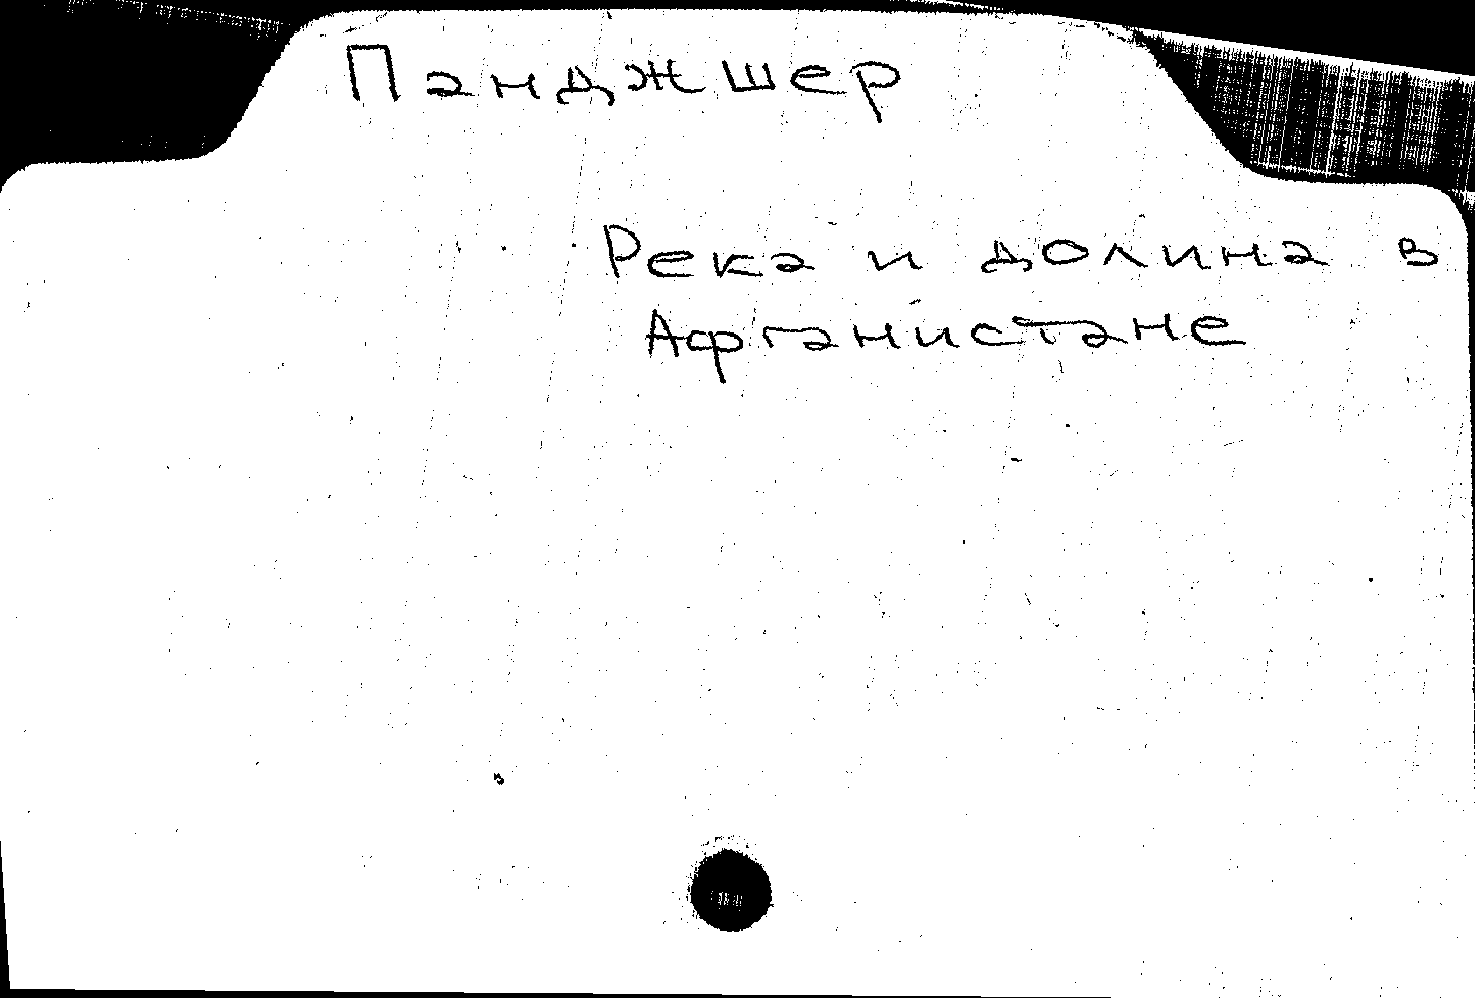 Панджшер
Река и долина в
Афганистане